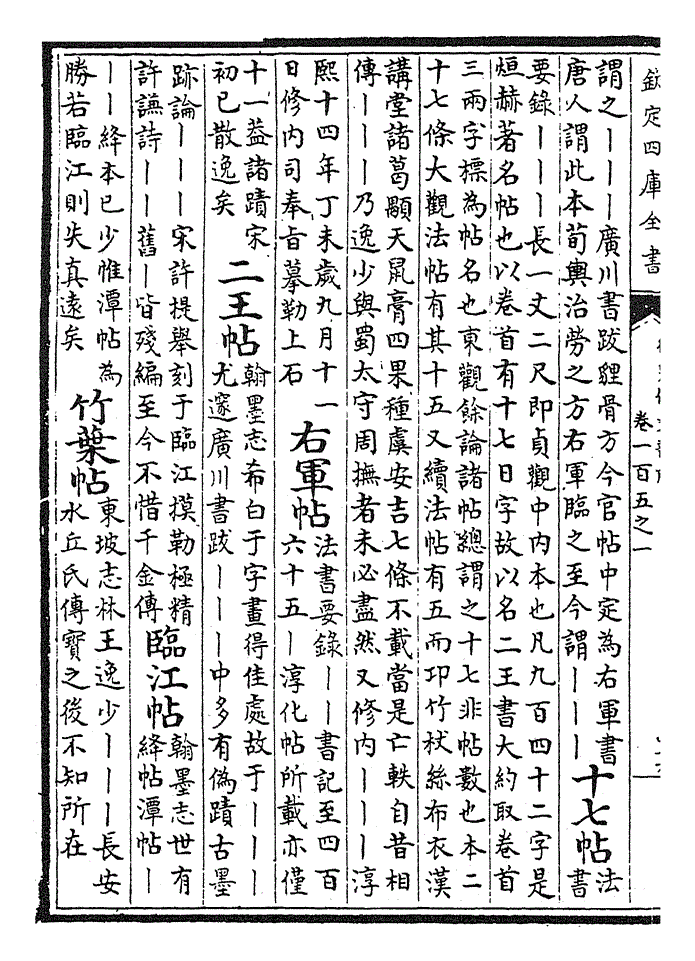 欽定四庫全書
卷一百五之一
謂之丨丨丨廣川書跋貍骨方今官帖中定為右軍書
唐人謂此本荀輿治勞之方右軍臨之至今謂丨丨丨
十七帖
法
書
要錄丨丨丨長一丈二尺即貞觀中内本也凡九百四十二字是
烜赫著名帖也以卷首有十七日字故以名二王書大約取卷首
三兩字標為帖名也東觀餘論諸帖總謂之十七非帖數也本二
十七條大觀法帖有其十五又續法帖有五而邛竹杖絲布衣漢
講堂諸葛顒天鼠膏四果種虞安吉七條不載當是亡軼自昔相
傳丨丨丨乃逸少與蜀太守周撫者未必盡然又修内丨丨丨淳
熙十四年丁未歲九月十一
日修内司奉旨摹勒上石
右軍帖
法書要錄丨丨書記至四百
六十五丨淳化帖所載亦僅
十一葢諸蹟宋
初已散逸矣
二王帖
翰墨志希白于字畫得佳處故于丨丨丨
尤邃廣川書跋丨丨丨中多有偽蹟古墨
跡論丨丨丨宋許提舉刻于臨江摸勒極精
許謙詩丨丨舊丨皆殘編至今不惜千金傳
臨江帖
翰墨志世有
絳帖潭帖丨
丨丨絳本已少惟潭帖為
勝若臨江則失真遠矣
竹葉帖
東坡志林王逸少丨丨丨長安
水丘氏傳寳之後不知所在